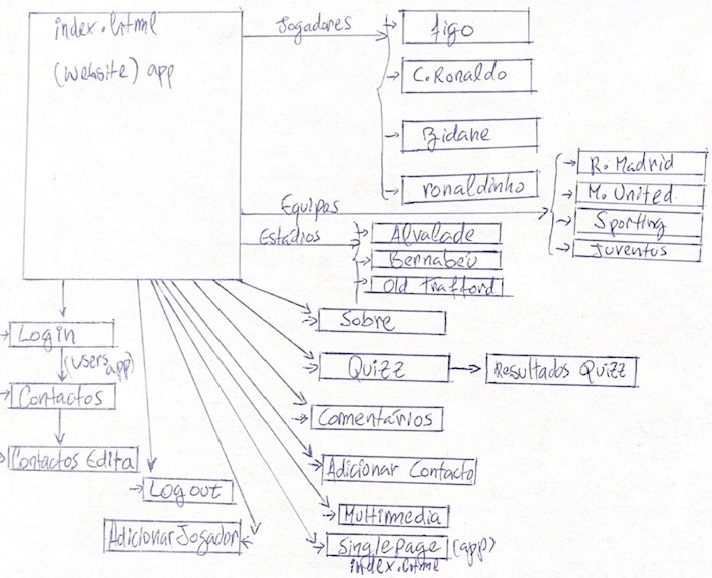 index.html
(website) app
Jogadores
figo
C.Ronaldo
Zidane
ronaldinho
Equipas
R. Madrid
M. United
Sporting
Juventus
Estádios
Alvalade
Bernabéu
Old Trafford
Sobre
Quizz
Resultados Quizz
Comentários
Adicionar Contacto
Multimedia
Singlepage (app)
index.html
Login
(users app)
Contactos
Contactos Edita
Logout
Adicionar Jogador